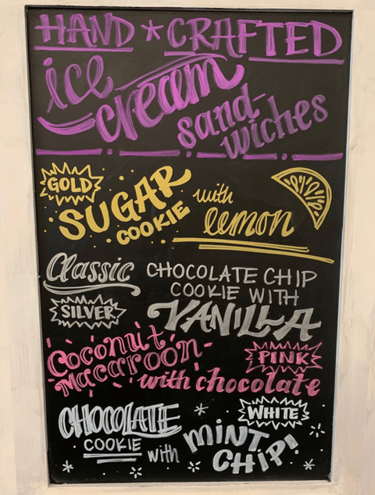 HAND ★ CRAFTED
ice
cream
sand-
wiches
GOLD
SUGAR
COOKIE
with
lemon
Classic
CHOCOLATE CHIP
COOKIE WITH
SILVER
VANILLA
Coconut
Macaroon
PINK
with chocolate
CHOCOLATE
COOKIE
with
WHITE
MINT
CHIP!